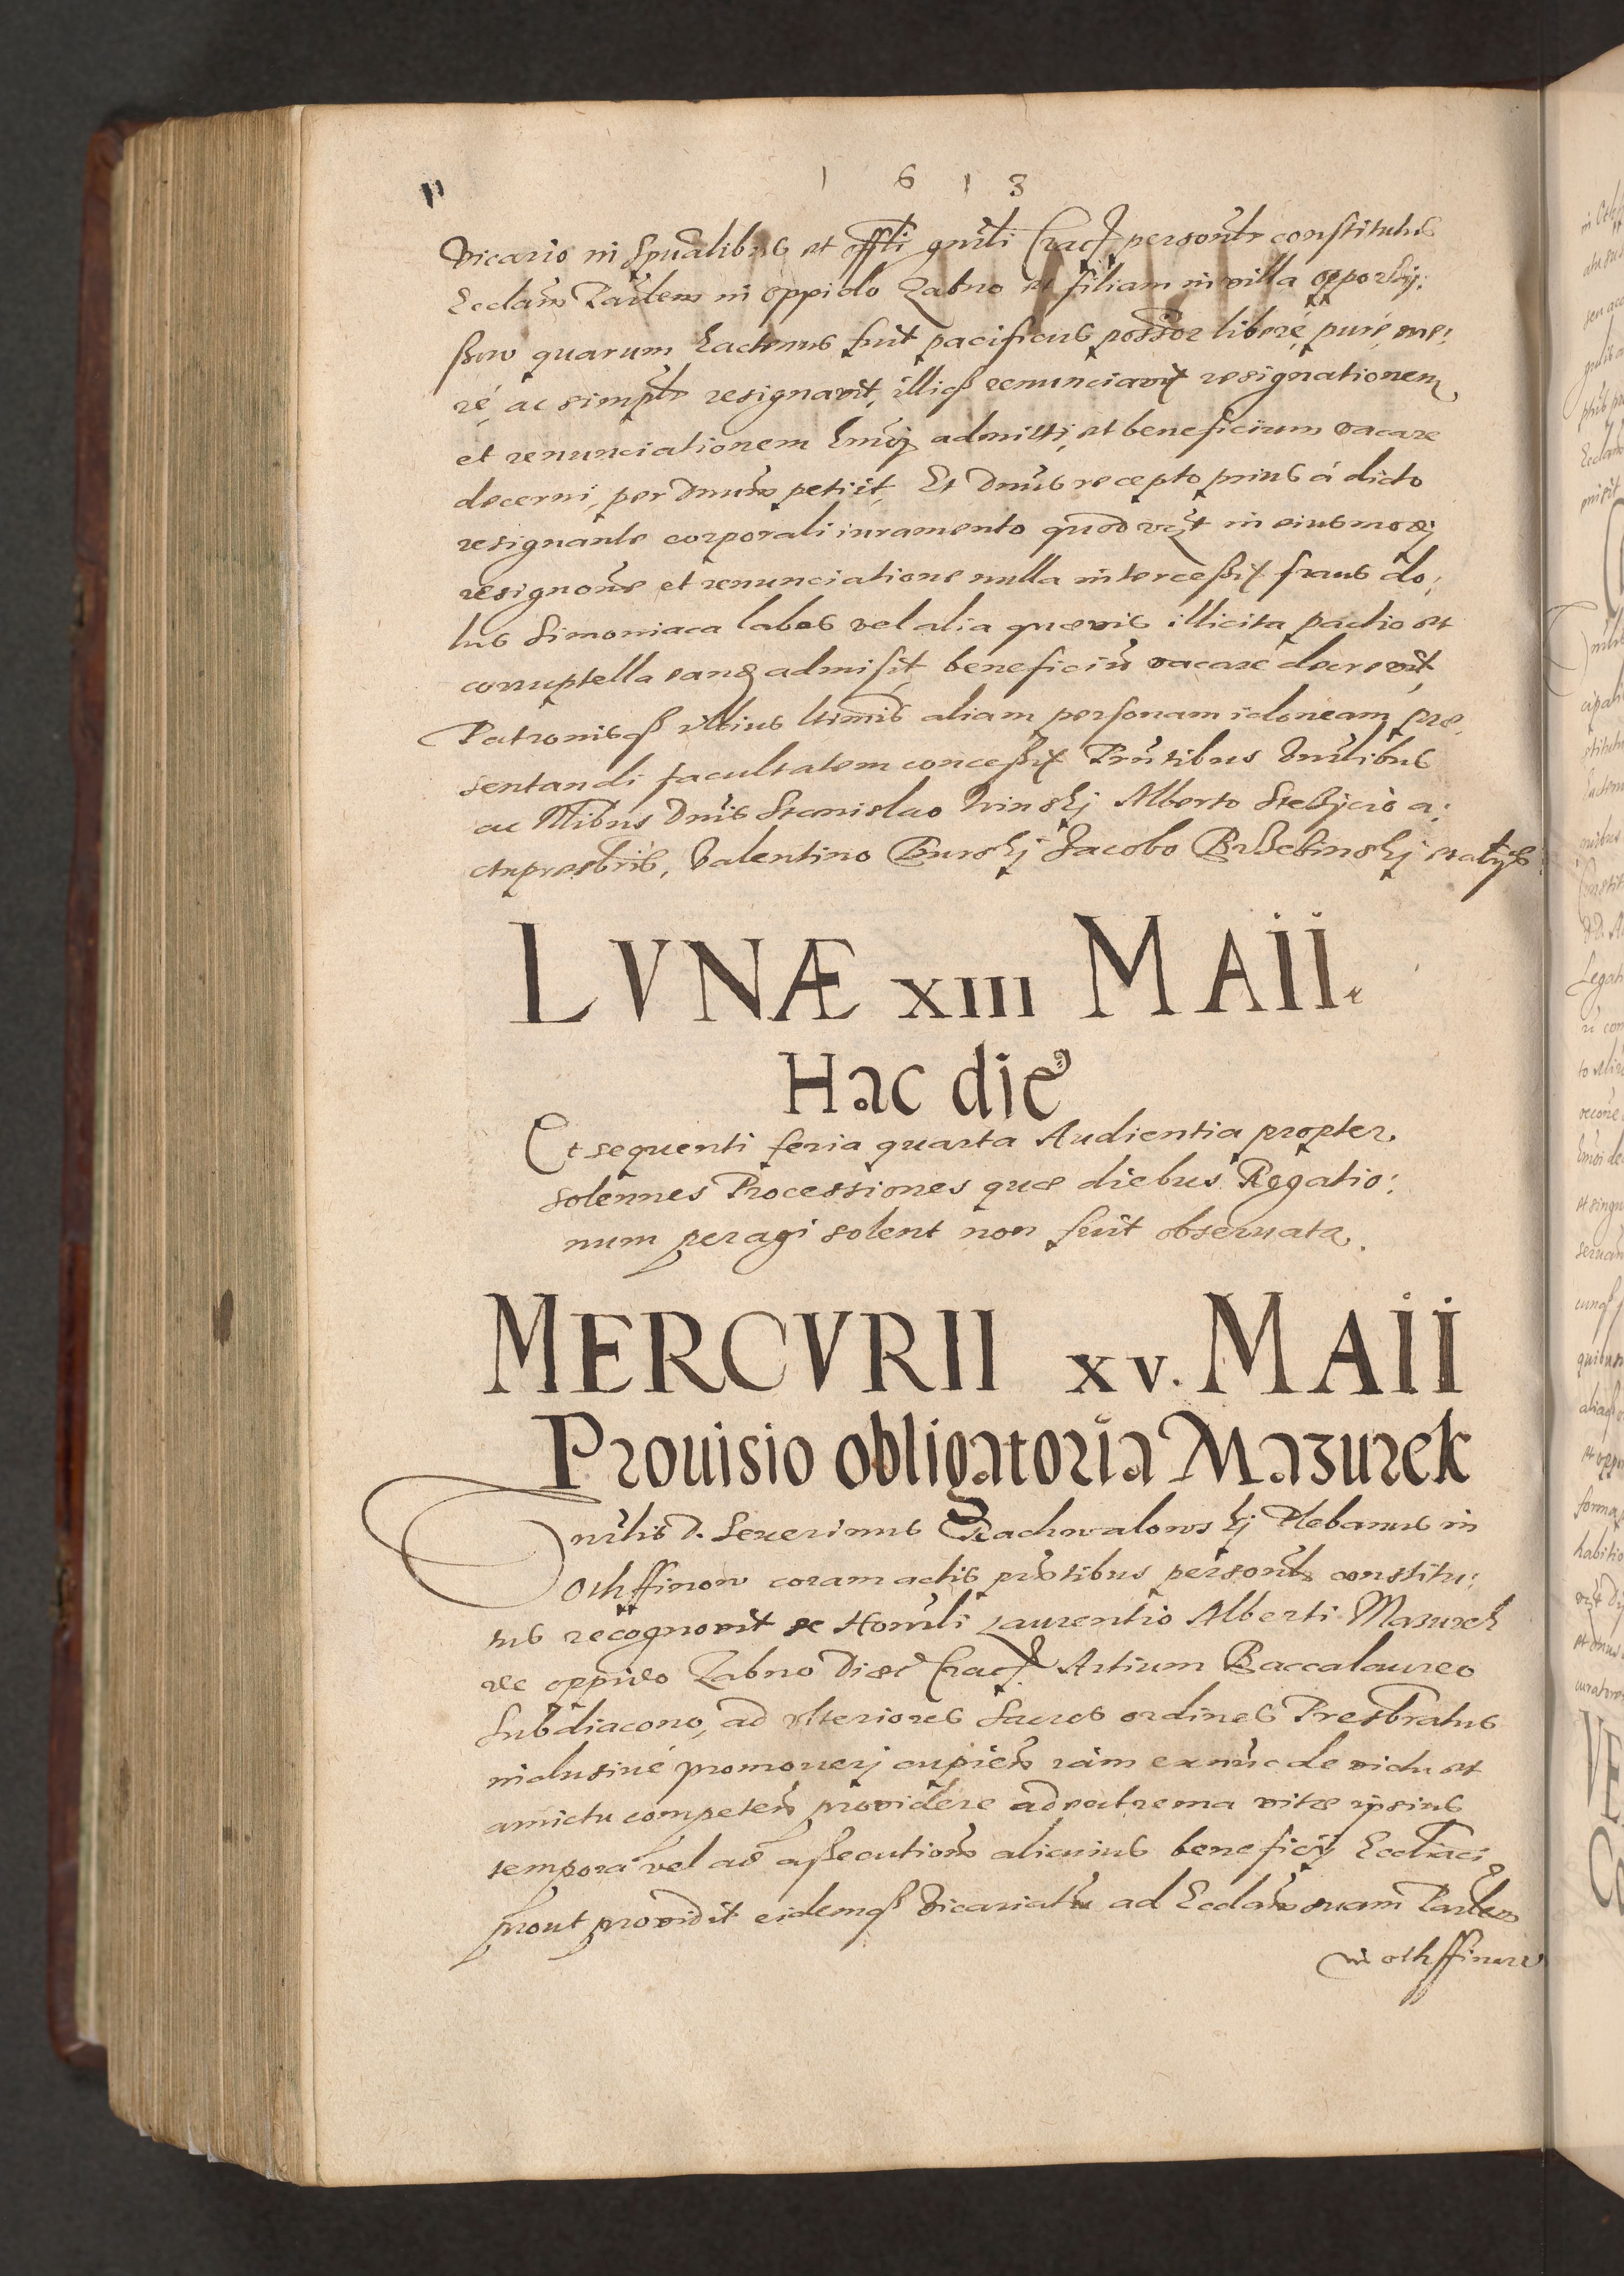 1 6 1 3
Vicario in Spũalibus et offli gnrli Crac. personlr constitutus
Eccliam Parlem in oppido Zabno et filiam in villa
quarum hactenus fuit pacificus possor liberé, puré, me:
ré, ac simplr resignavit, illiq3 renunciavit resignationem
et renunciationem hmoj admitti, et beneficium vacare
decerni, per Dnum petijt, Et Dnus recepto prius á dicto
resignante corporali iuramento quod in eiusmodj
resignone et renunciatione nulla intercessit fraus do:
lus Simoniaca labes vel alia quævis illicita pactio et
corruptella eang admisit beneficiũ vacare decrevit,
Patronisq3 illius ltimis aliam personam idoneam præ
sentandi facultatem concessit Pr̃ntibus Vnrlibus
ac Nlibus Dnis Stanislao Alberto a:
Valentino Burskj Jacobo et alijs
LVNÆ XIII MAII.
Hac die
Et sequenti feria quarta Audientia propter
solennes Processiones quæ diebus Rogatio:
num peragi solent non fuit obseruata.
MERCVRII XV. MAII
Prouisio obligatoria Mazurek
Vnrlis D. Seuerinus Plebanus in
Othffinow coram actis pr̃ntibus personlr constitu:
tus recognovit se Honrli Laurentio Alberti Mazurek
de oppido Zabno Diæc Crac. Artium Baccalaureo
Subdiacono, ad vlteriores Sacros ordines Presbratus
inclusiué promoverj cupien iam ex nũc de victu et
amictu competen providere ad extrema vitæ ipsius
tempora vel ad assecutionem alicuius beneficij Eccliaci
prout providit eidemq3 Vicariatũ ad Eccliam suam Parlem
in Othffinow